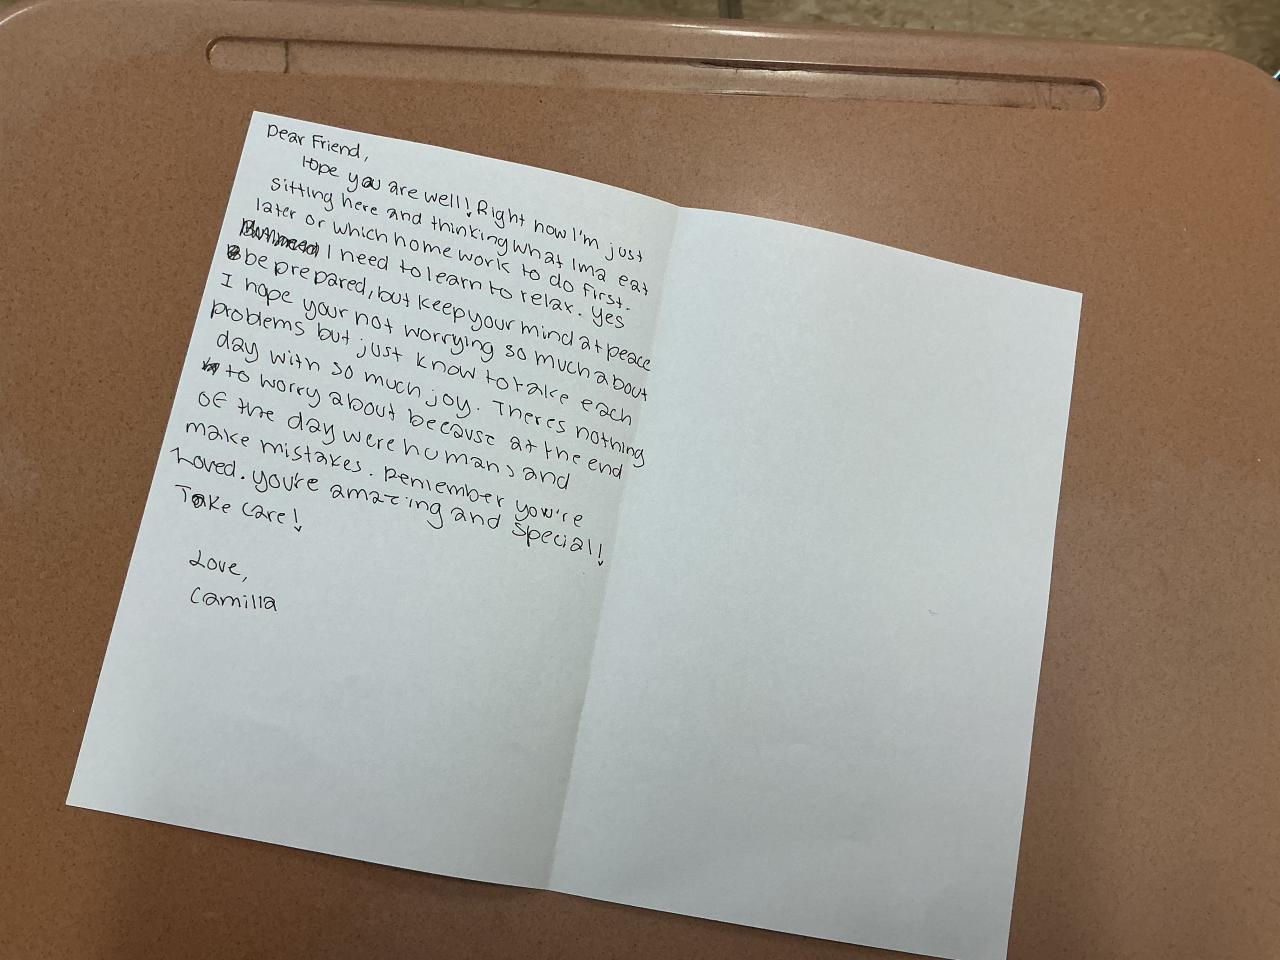 Dear Friend,
Hope you are well! Right now I'm just
sitting here and thinking what Ima eat
later or which homework to do first.
I need to learn to relax. Yes
be prepared, but keep your mind at peace
I hope your not worrying so much about
problems but just know to take each
day with so much joy. Theres nothing
to worry about because at the end
of the day were humans and
make mistakes. Remember you're
Loved. You're amazing and special!
Take care!
Love,
Camilla